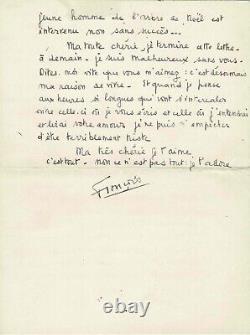 jeune homme de l'arrière de Noël est
intervenu non sans succès...
Ma toute chérie, je termine cette lettre
à demain. je suis malheureux sans vous.
Dites-moi vite que vous m'aimez : c'est désormais
ma raison de vivre. Et quand je pense
aux heures si longues qui vont s'intercaler
entre celle-ci où je vous écris et celle où j'entendrai
et lirai votre amour je ne puis m'empêcher
d'être terriblement triste
Ma très chérie je t'aime
c'est tout - non ce n'est pas tout : je t'adore
François
© transcendimage.com